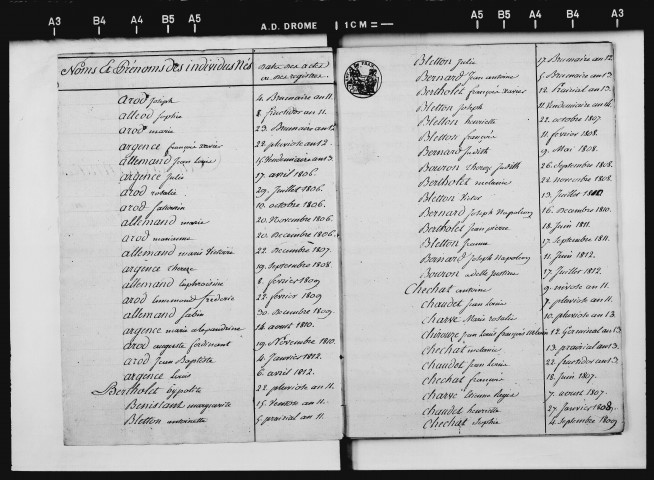 A3 B4 B5 A5 A.D. DROME 1 CM A5 B5 A4 B4 A3
Noms Et Prénoms des individus Nés
Date des actes
ou des registres.
arod Joseph 4. Brumaire an 11.
alleod Sophie 8. fructidor an 11.
arod marie 23. Brumaire an 12
argence françois xavier 22 pluviose an 12.
allemand Jean Louis 15 Vendemiaire an 13.
argence Julie 17 avril 1806.
arod rosalie 29. Juillet 1806.
arod 10. octobre 1806.
allemand marie 20. Novembre 1806.
arod marianne 20. Decembre 1806.
allemand marie Victoire 22. Decembre 1807.
argence therese 19. Septembre 1808
allemand Euphrosine 8. fevrier 1809
arod frederic 22 fevrier 1809
allemand Sabin 30 Decembre 1809.
argence marie alexandrine 24 aoust 1810.
arod auguste ferdinant 19. Novembre 1810.
arod Jean Baptiste 4 Janvier 1812.
argence Louis 6 avril 1812.
Bertholet hypolite 22 pluviose an 11.
Benistant marguerite 15 Ventose an 11.
Bletton antoinette 5 prairial an 11.
Bletton Julie 17. Brumaire an 12
Bernard Jean antoine 5 Brumaire an 13.
Bertholet françois Xavier 12 prairial an 13.
Bletton Joseph 11 Vendemiaire an 14.
Bletton henriette 22 octobre 1807
Bletton françois 11 fevrier 1808.
Bernard Judith 9. Mai 1808.
Bouron therese Judith 26 Septembre 1808.
Bertholet melanie 22 novembre 1808.
Bletton Victor 13. Juillet
Bernard Joseph Napoleon 16. Decembre 1810.
Bertholet Jean pierre 18 Juin 1811.
Bletton 17 Septembre 1811.
Bernard Joseph Napoleon 11 Juin 1812.
Bouron adelle Justine 17 Juillet 1812.
Chechat antoine 9. nivose an 11.
Chaudet Jean Louis 7 pluviose an 11.
Charve Marie rosalie 10 pluviose an 13.
Jean Louis françois 12 Germinal an 13.
Chechat melanie 13 prairial an 13.
Chaudet Jean Louis 22 fructidor an 13.
Chechat françois 18 Juin 1807.
Charve Etienne Regis 7. aoust 1807.
Chaudet henriette 27 Janvier 1808.
Chechat Sophie 4 Septembre 1809